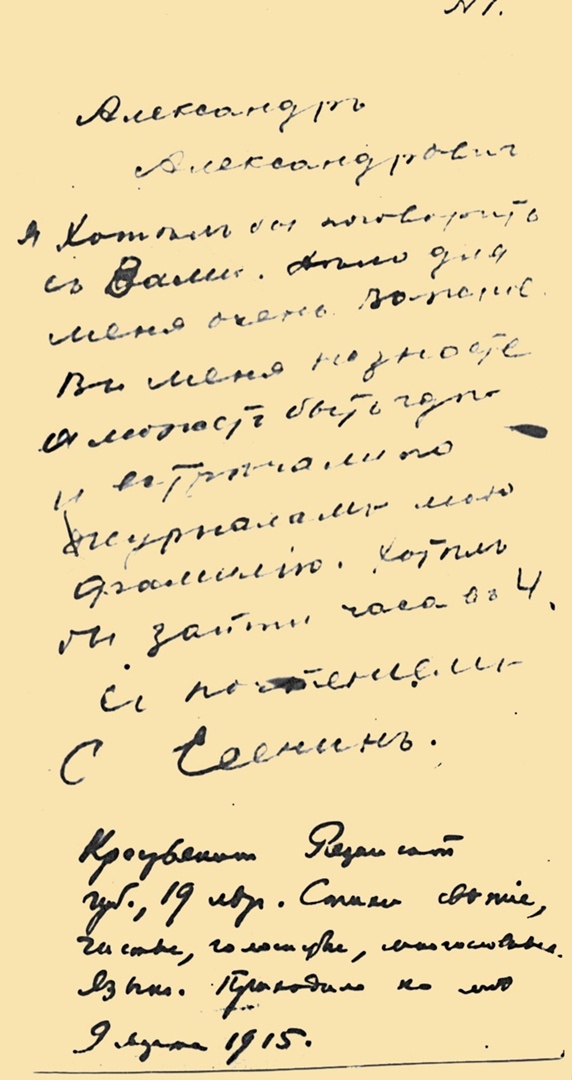 N 1.
Александръ
Александрович
Я Хотѣлъ бы поговорить
съ Вами. Дѣло для
меня очень важное.
Вы меня не знаете
а может быть где
и встрѣчали по
журналамъ мою
фамилію. Хотѣлъ
бы зайти часа въ 4.
Съ почтениемъ
С Есенинъ.
Крестьянин Рязанской
губ., 19 лет. Стихи свѣжіе,
чистые, голосистые, многословные.
Языкъ. Приходилъ ко мнѣ
9 марта 1915.